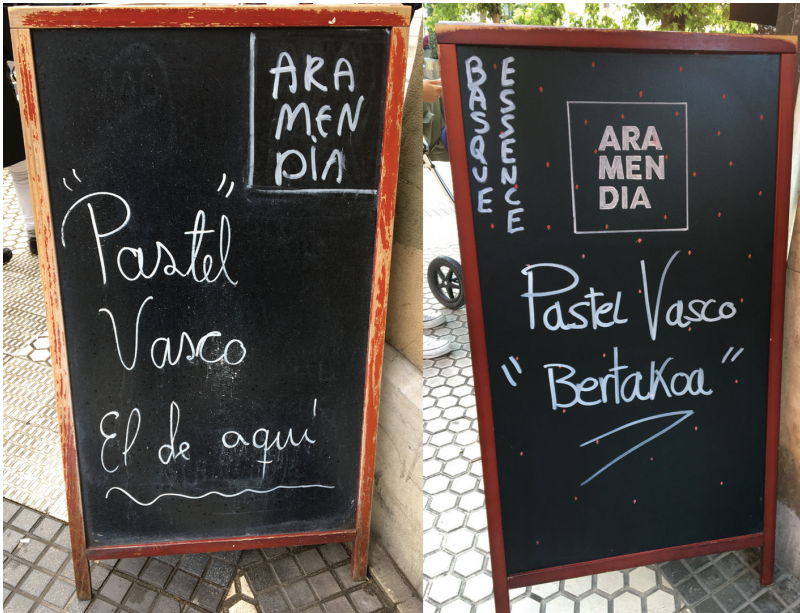 ARA
MEN
DIA
"Pastel"
Vasco
El de aquí
BASQUE
ESSENCE
ARA
MEN
DIA
Pastel Vasco
"Bertakoa"